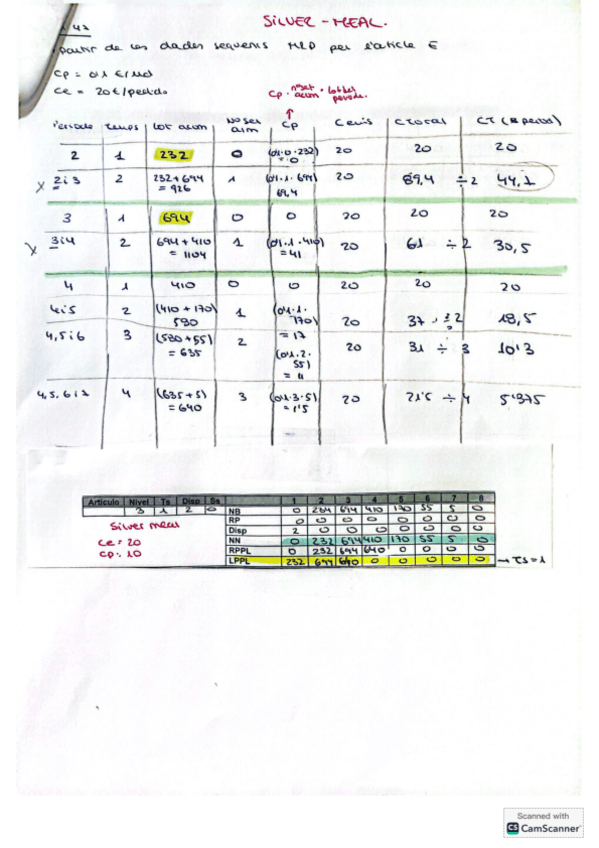 SILVER - MEAL.
partir de les dades següents MRP per l'article E
Cp = 0'1 €/und
Ce = 20€/pedido
Cp · nºset acum · lot del periode.
Periode Temps Lot acum Nº Set acm Cp C emis C Total CT (x periode)
2 1 232 0 (0'1·0·232) = 0 20 20 20
x 2i3 2 232+694 = 926 1 (0'1·1·694) 69,4 20 89,4 ÷ 2 44,7
3 1 694 0 0 20 20 20
x 3i4 2 694+410 = 1104 1 (0'1·1·410) = 41 20 61 ÷ 2 30,5
4 1 410 0 0 20 20 20
4i5 2 (410+170) 580 1 (0'1·1·170) = 17 20 37 ÷ 2 18,5
4,5i6 3 (580+55) = 635 2 (0'1·2·55) = 11 20 31 ÷ 3 10'3
4,5,6i7 4 (635+5) = 640 3 (0'1·3·5) = 1'5 20 21'5 ÷ 4 5'375
Artículo Nivel Ts Disp Ss 1 2 3 4 5 6 7 8
3 1 2 0 NB 0 234 694 410 170 55 5 0
Silver meal RP 0 0 0 0 0 0 0 0
Disp 2 0 0 0 0 0 0 0
Ce = 20 NN 0 232 694 410 170 55 5 0
Cp = 10 RPPL 0 232 694 640 0 0 0 0
LPPL 232 694 640 0 0 0 0 0 → TS=1
Scanned with
CS CamScanner